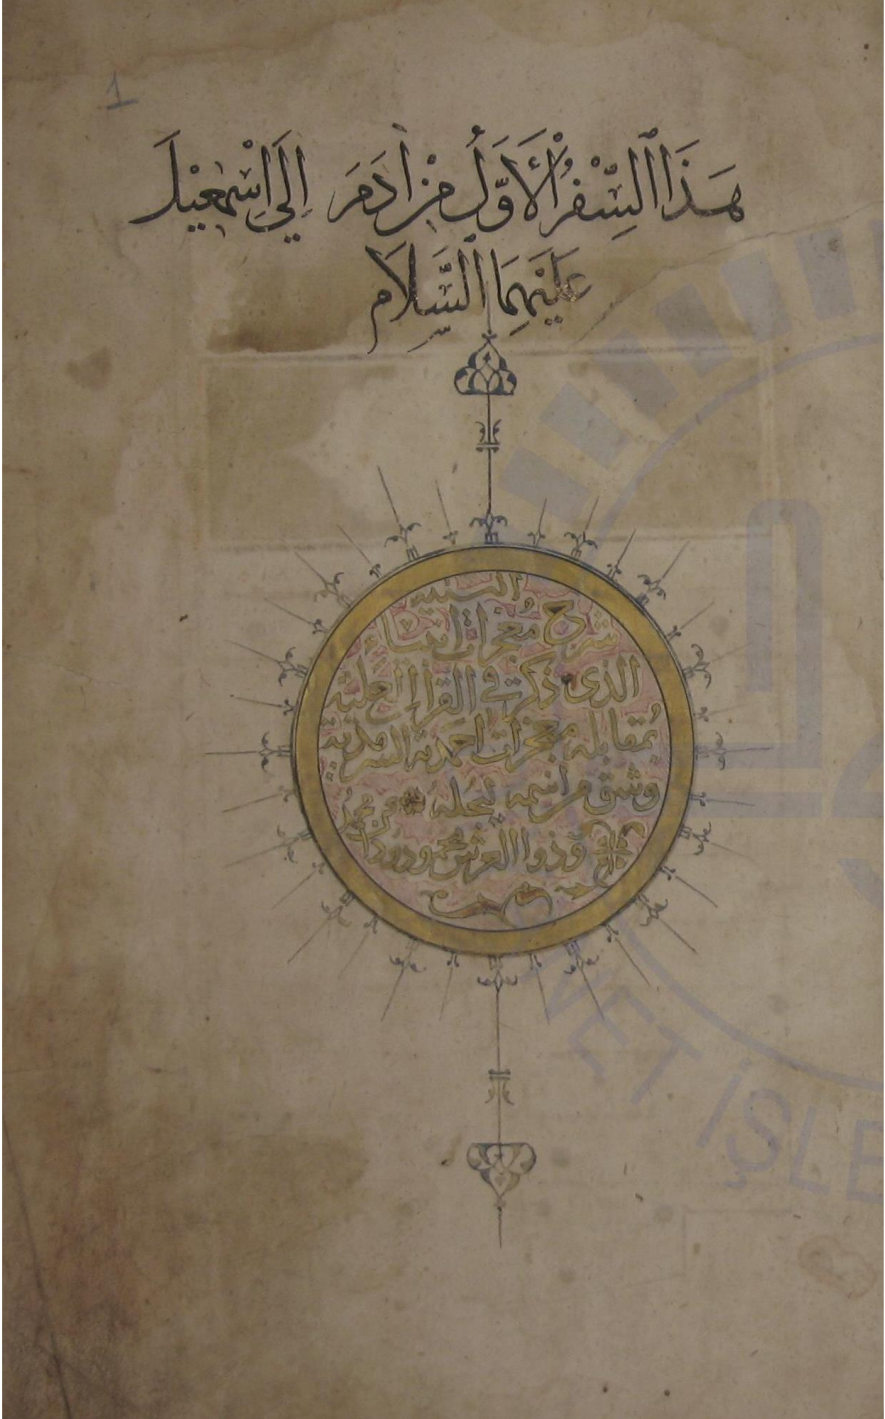 1
هَذَا السِّفْرُ الْأَوَّلُ مِنْ اٰدَمَ اِلَى اِسْمٰعِيْلَ
عَلَيْهِمَا السَّلَامُ
شرح معجزات انبياء
الذى ذكرت فى القران العلية
بمقابلة معجزات احمدية السرمدية
وشق من اسمه ليجله
وذوا العرش محمود
VET İŞLE